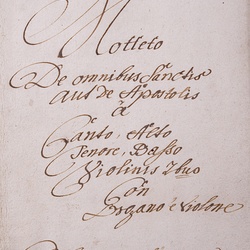 Motteto
De omnibus Sanctis
aut de Apostolis
à
Canto, Alto
Tenore, Basso
Violinis 2buo
Con
Organo è Violone